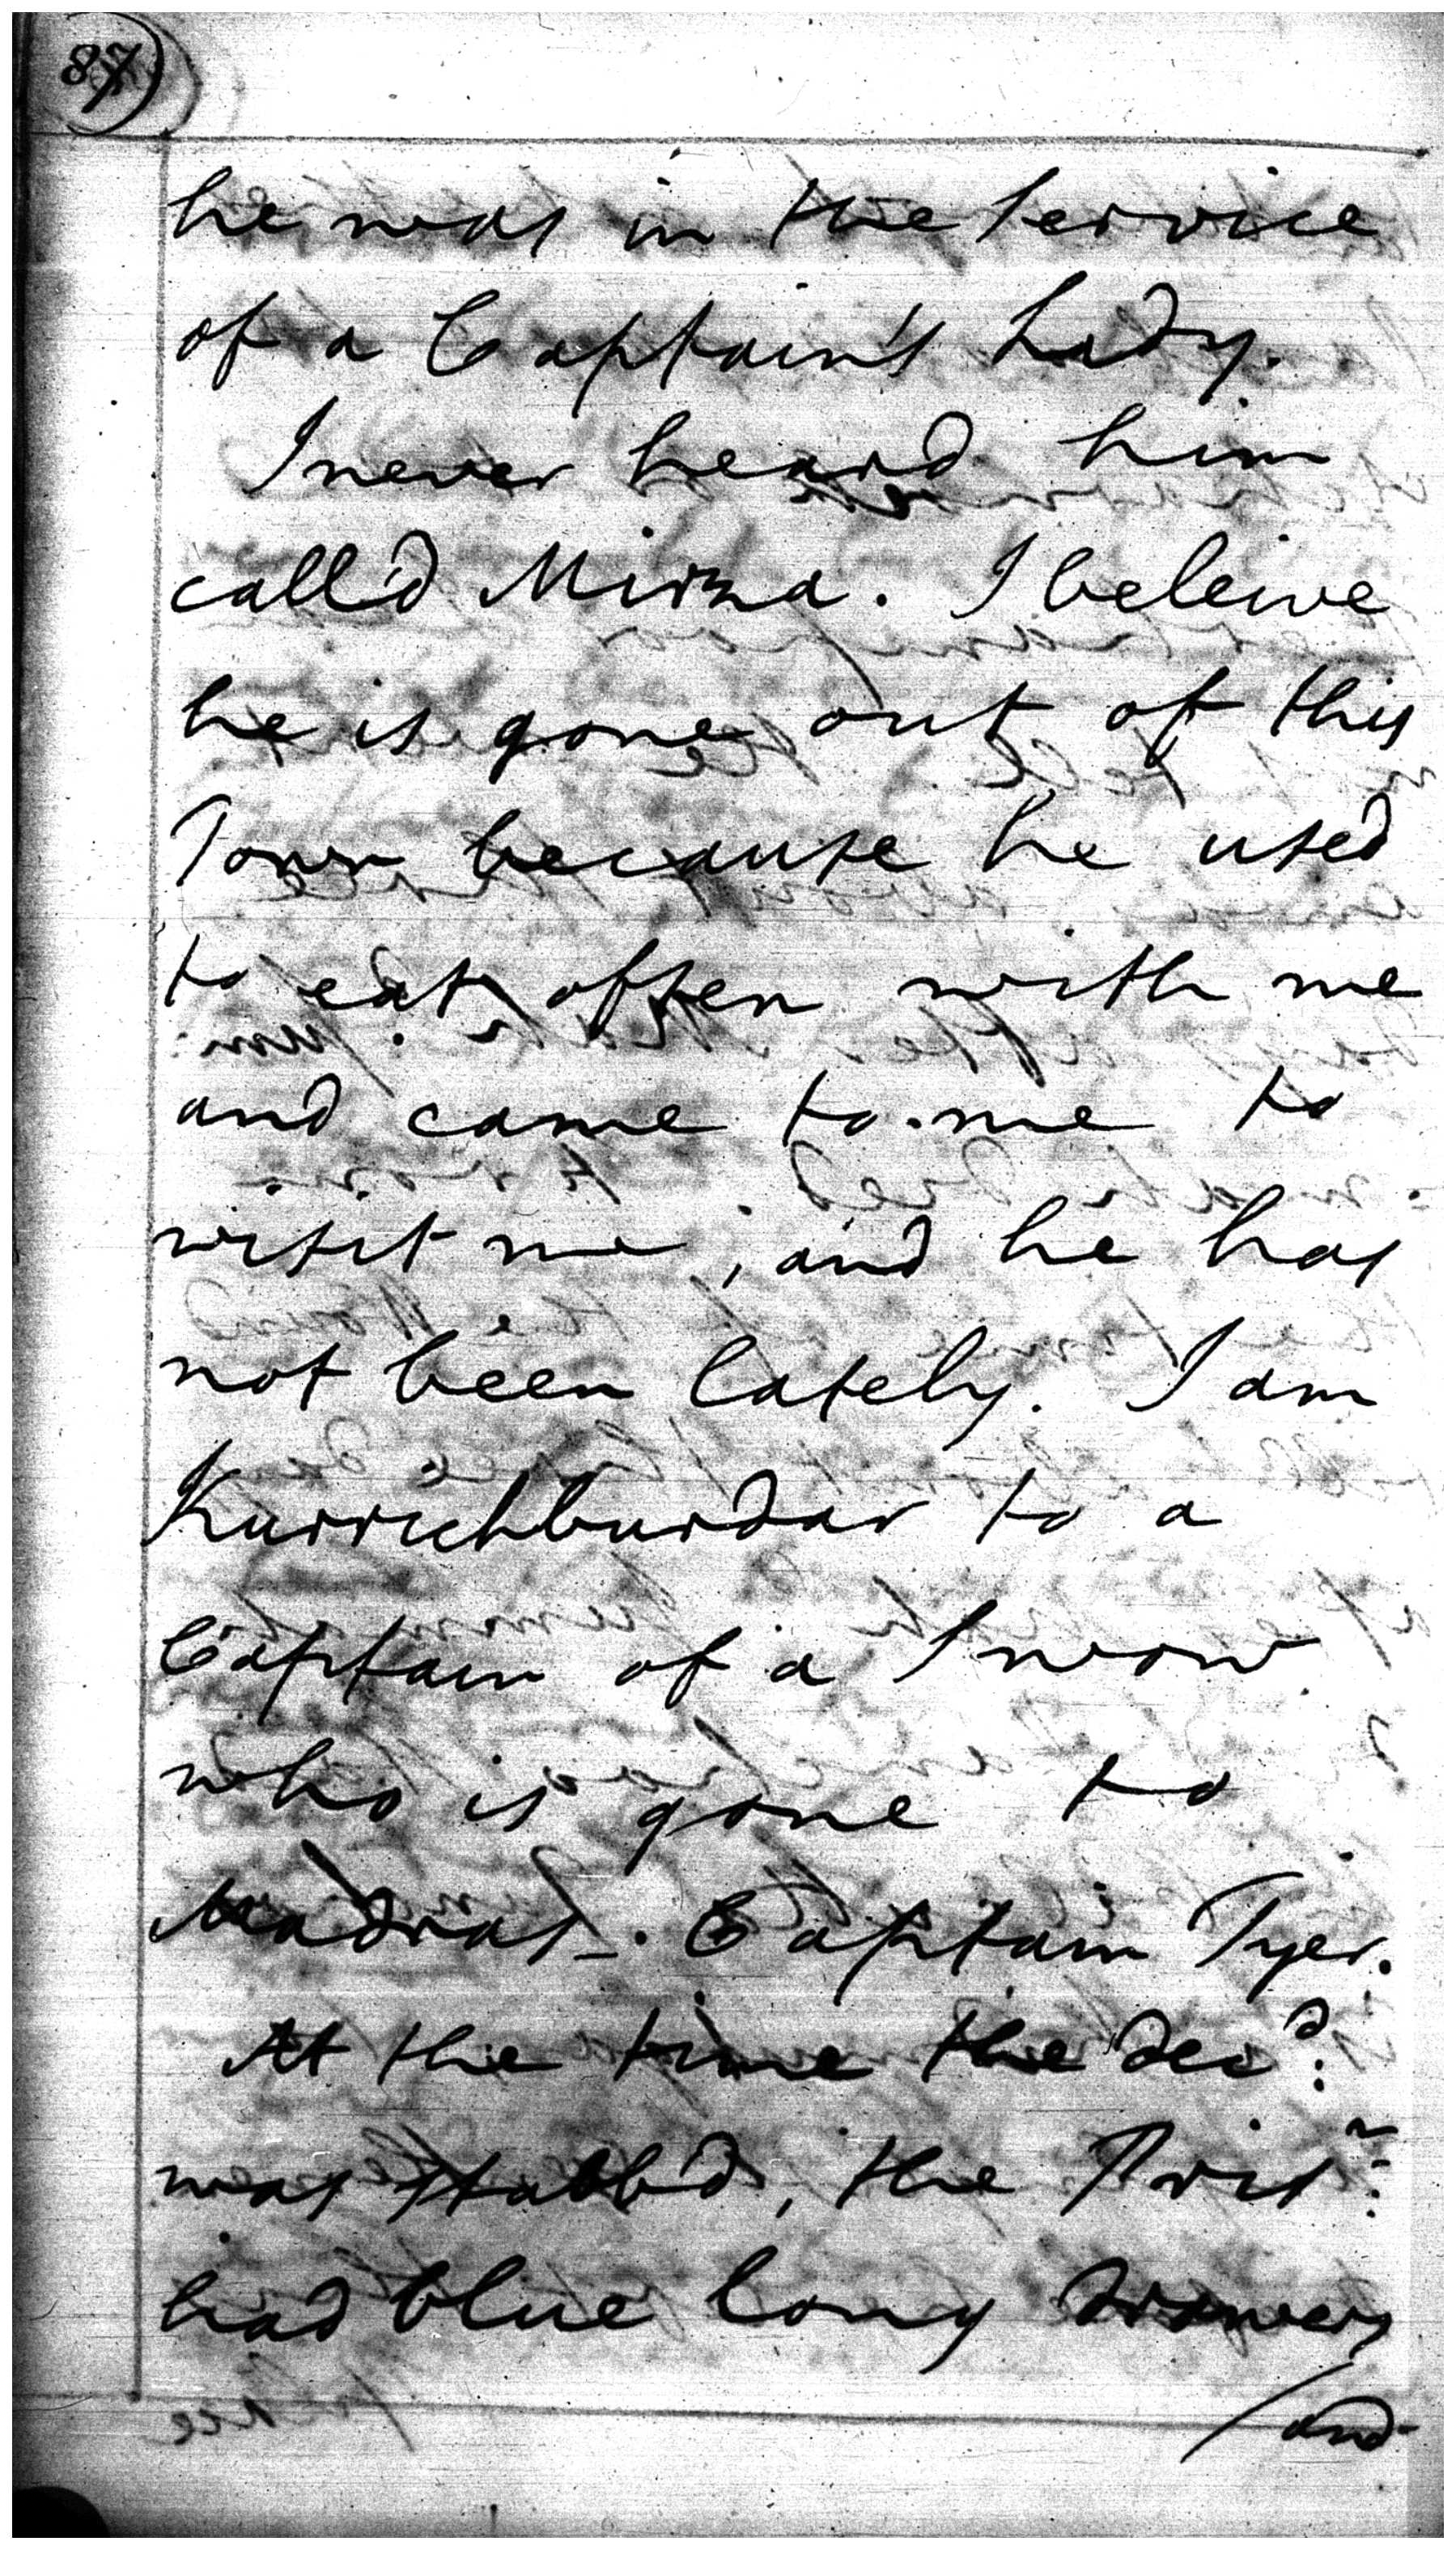 87)
he was in the Service
of a Captain's Lady.
I never heard him
call'd Mirza. I beleive
he is gone out of this
Town because he used
to eat often with me
and came to me to
visit me, and he has
not been lately. I am
Kurrichburdar to a
Captain of a Snow
who is gone to
Madras. Captain Tyer.
At the time the decd:
was stabb'd, the Prisr:
had blue long drawers
/and